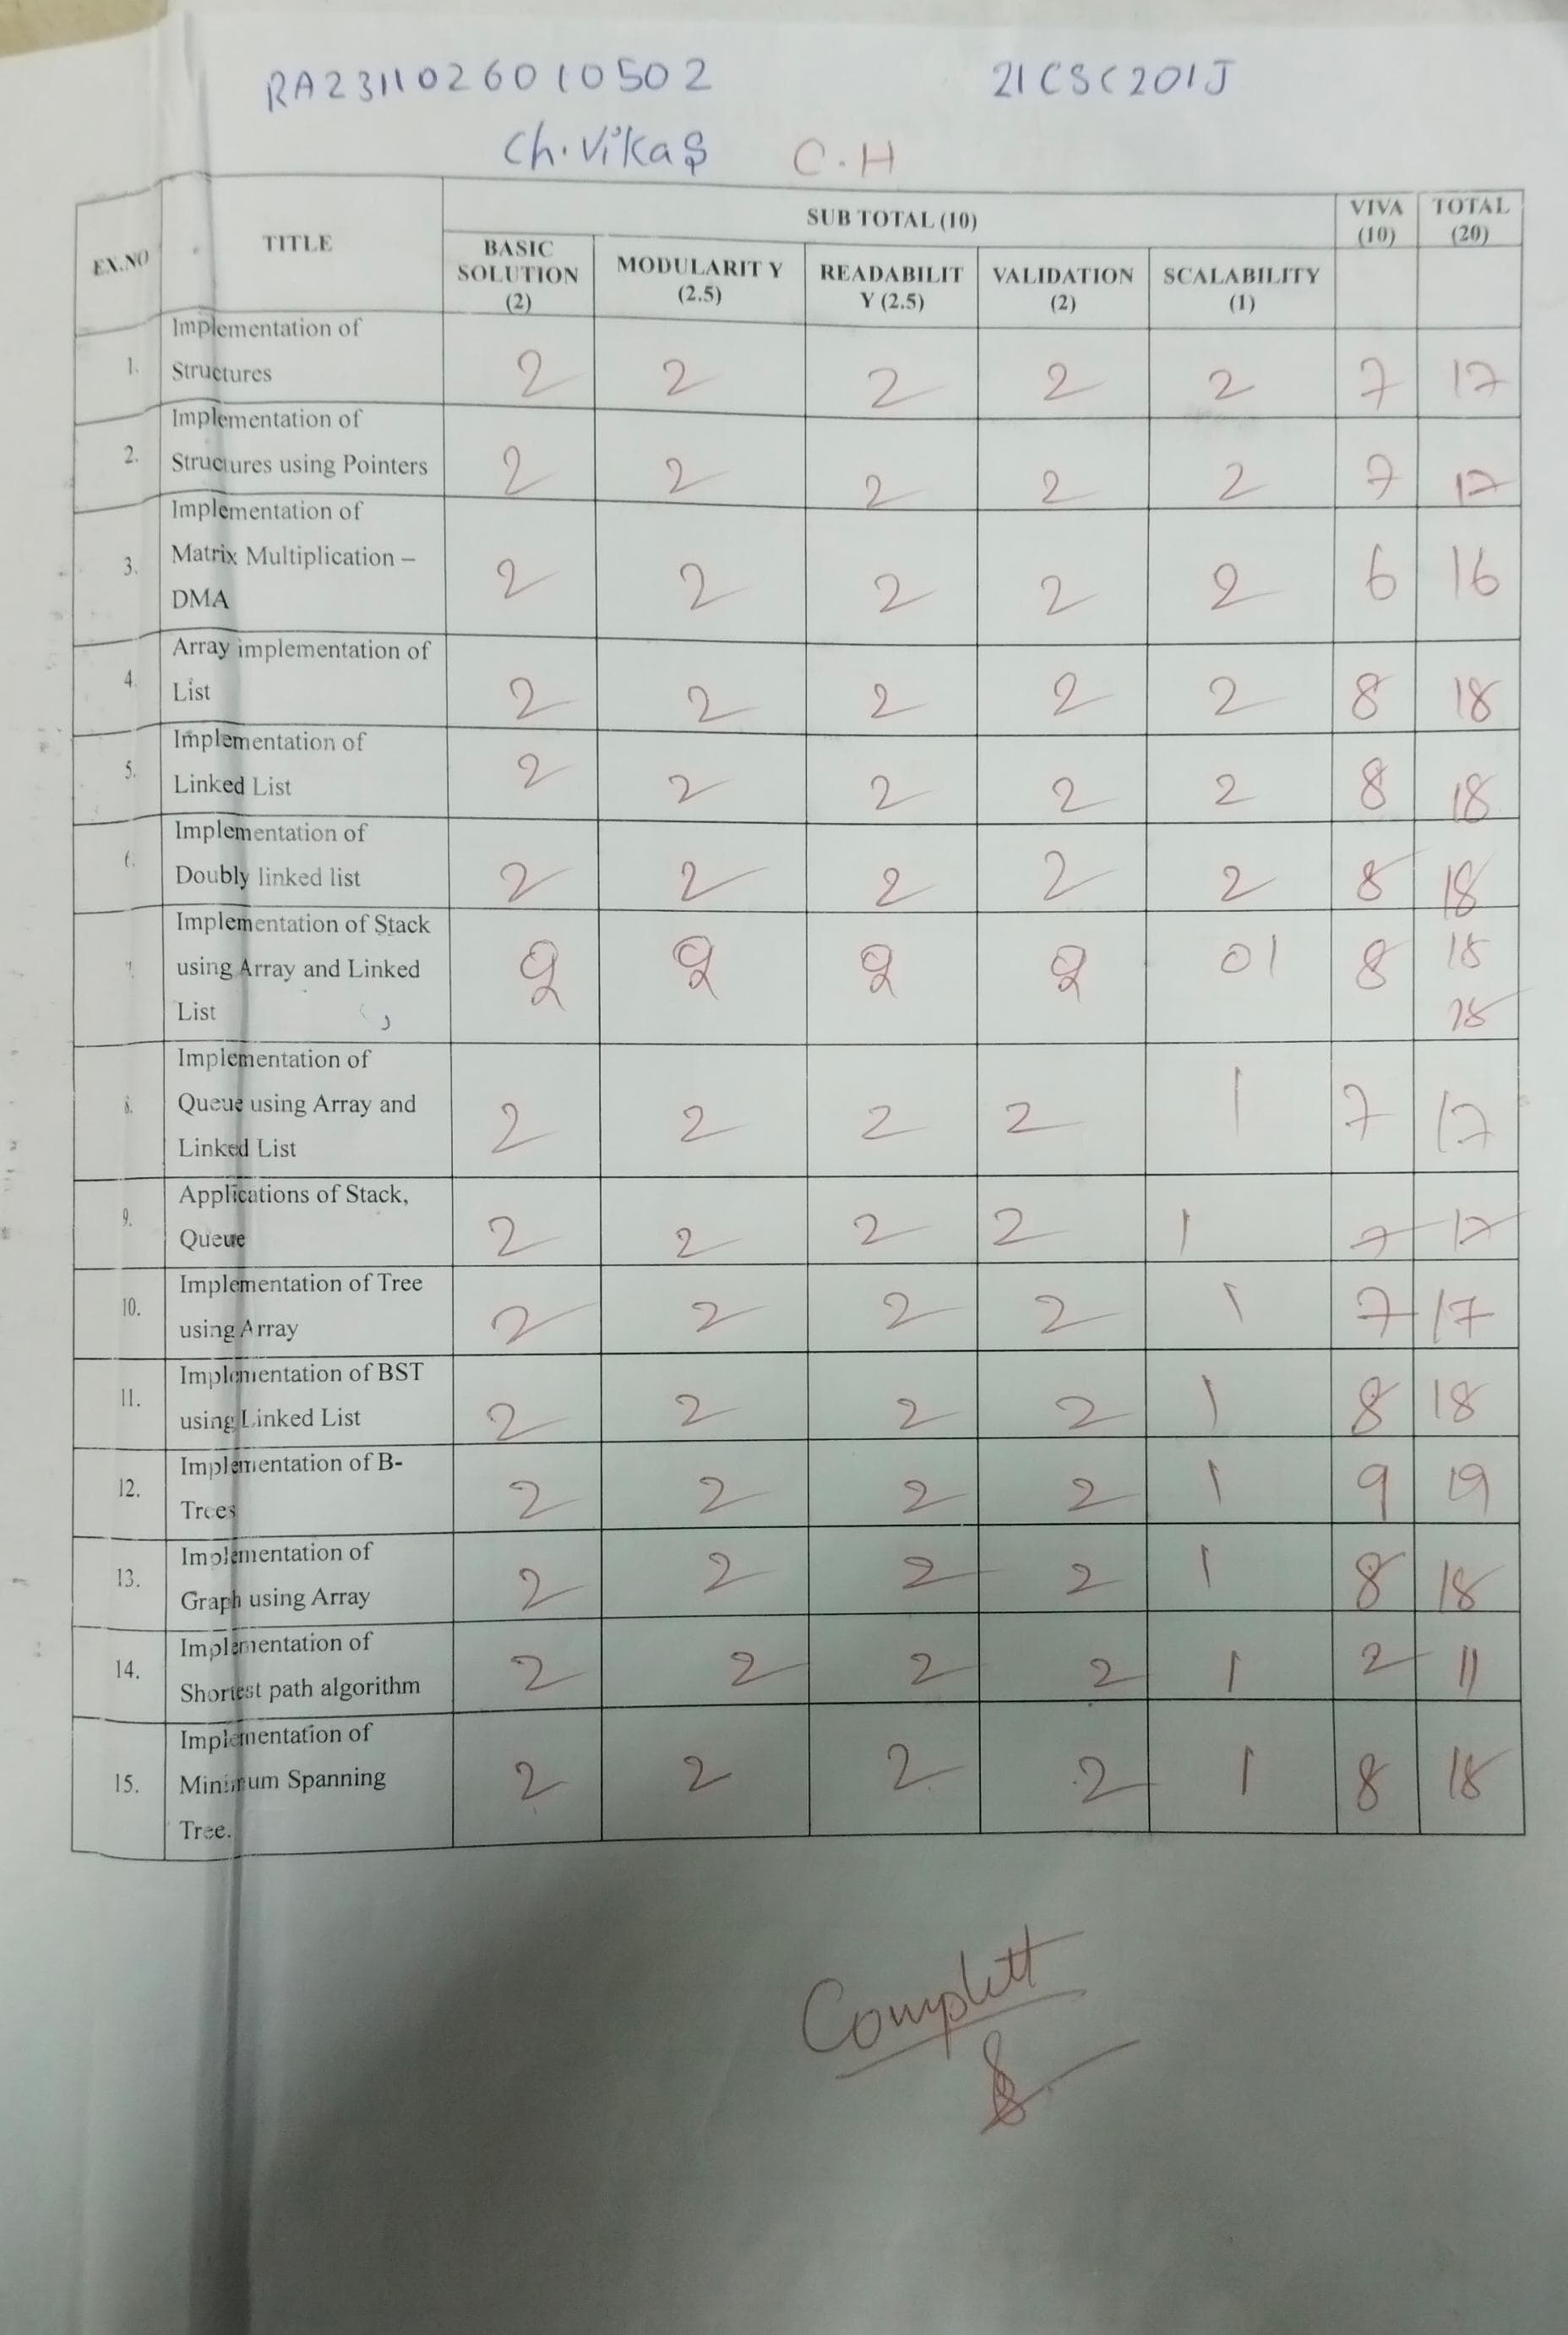 RA2311026010502 21CSC201J
Ch. Vikas C.H
EX.NO TITLE SUB TOTAL (10) VIVA (10) TOTAL (20)
BASIC SOLUTION (2) MODULARIT Y (2.5) READABILIT Y (2.5) VALIDATION (2) SCALABILITY (1)
1. Implementation of Structures 2 2 2 2 2 7 17
2. Implementation of Structures using Pointers 2 2 2 2 2 7 17
3. Implementation of Matrix Multiplication – DMA 2 2 2 2 2 6 16
4. Array implementation of List 2 2 2 2 2 8 18
5. Implementation of Linked List 2 2 2 2 2 8 18
6. Implementation of Doubly linked list 2 2 2 2 2 8 18
7. Implementation of Stack using Array and Linked List 2 2 2 2 01 8 18
8. Implementation of Queue using Array and Linked List 2 2 2 2 1 7 17
9. Applications of Stack, Queue 2 2 2 2 1 7 17
10. Implementation of Tree using Array 2 2 2 2 1 7 17
11. Implementation of BST using Linked List 2 2 2 2 1 8 18
12. Implementation of B- Trees 2 2 2 2 1 9 19
13. Implementation of Graph using Array 2 2 2 2 1 8 18
14. Implementation of Shortest path algorithm 2 2 2 2 1 2 11
15. Implementation of Minimum Spanning Tree. 2 2 2 2 1 8 18